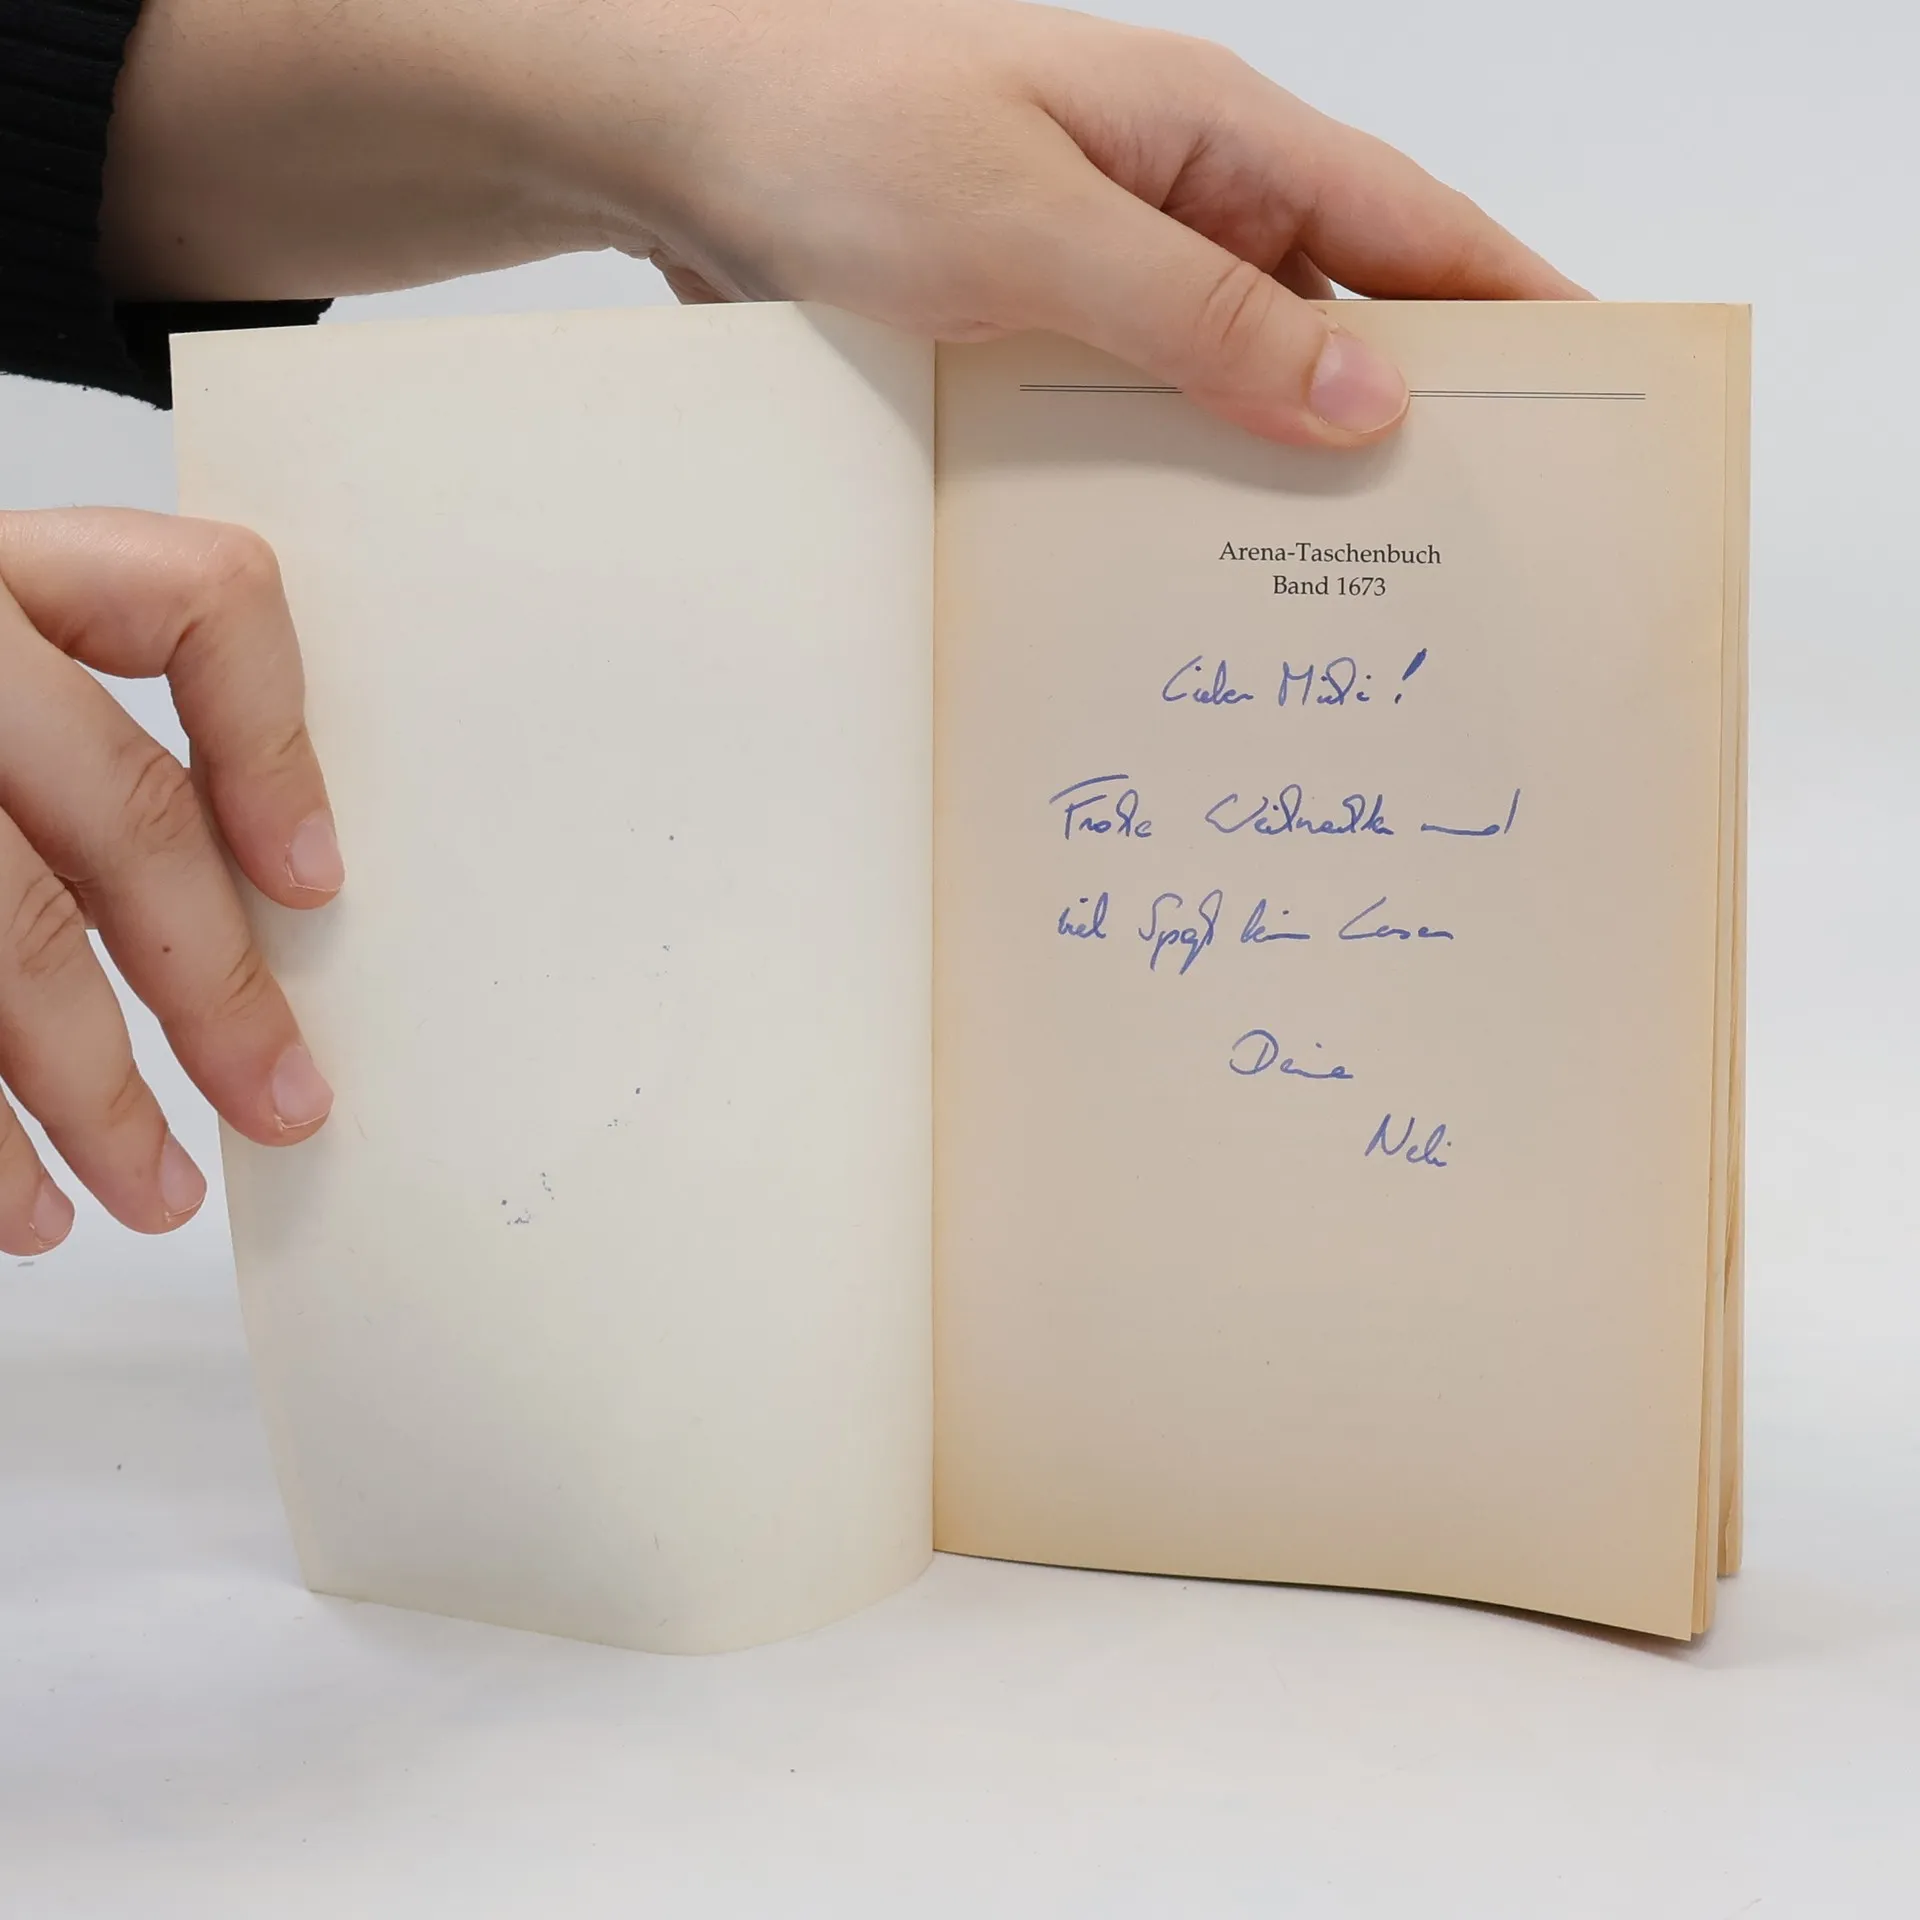 Arena-Taschenbuch
Band 1673
Lieber Michi!
Frohe Weihnachten und
viel Spaß beim Lesen
Deine
Neli